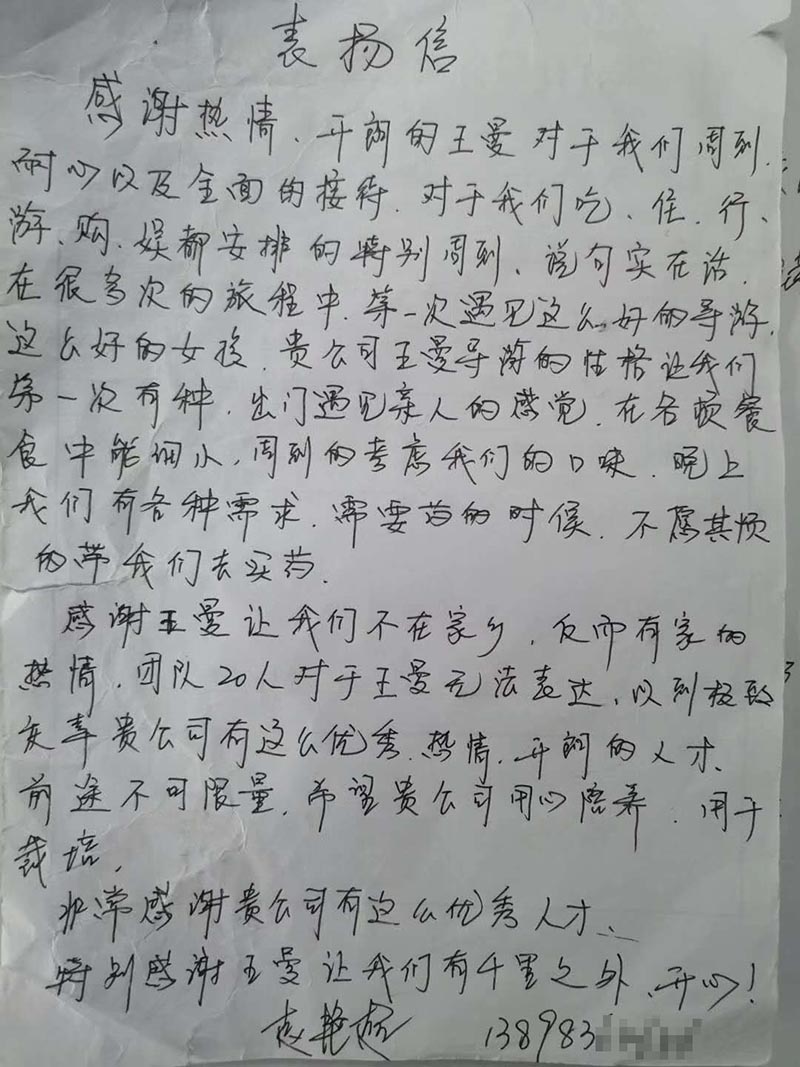 表扬信
感谢热情、开朗的王曼对于我们周到、
耐心以及全面的接待、对于我们吃、住、行、
游、购、娱都安排的特别周到、说句实在话、
在很多次的旅程中、第一次遇见这么好的导游、
这么好的女孩、贵公司王曼导游的性格让我们
第一次有种、出门遇见亲人的感觉、在各项餐
食中能细心、周到的考虑我们的口味、晚上
我们有各种需求、需要药的时候、不厌其烦
的带我们去买药、
感谢王曼让我们不在家乡、反而有家的
热情、团队20人对于王曼无法表达、以到极致
庆幸贵公司有这么优秀、热情、开朗的人才、
前途不可限量、希望贵公司用心陪养、用于
栽培、
非常感谢贵公司有这么优秀人才、
特别感谢王曼让我们有千里之外、开心！
138983